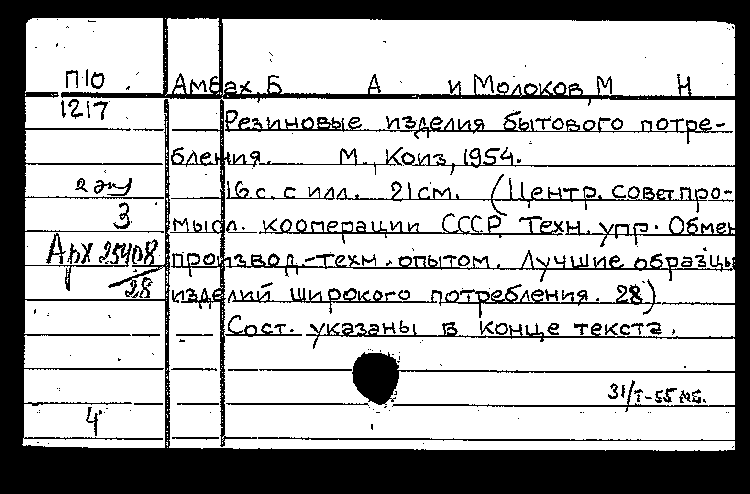 П10 Амбах, Б А и Молоков, М Н
1217 Резиновые изделия бытового потре-
бления. М., Коиз, 1954.
2 экз 16 с. с илл. 21 см. (Центр. совет про-
3 мысл. кооперации СССР. Техн. упр. Обмен
Арх 25408 производ.-техн. опытом. Лучшие образцы
28 изделий широкого потребления. 28)
Сост. указаны в конце текста.
31/I-55
4